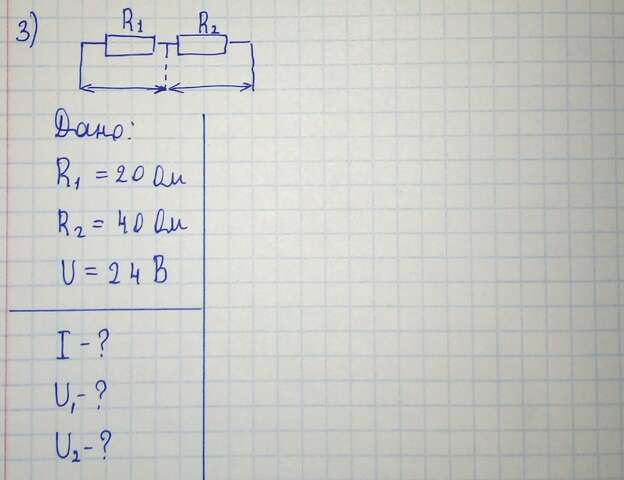 3)
R₁ R₂
Дано:
R₁ = 20 Ом
R₂ = 40 Ом
U = 24 В
I - ?
U₁ - ?
U₂ - ?